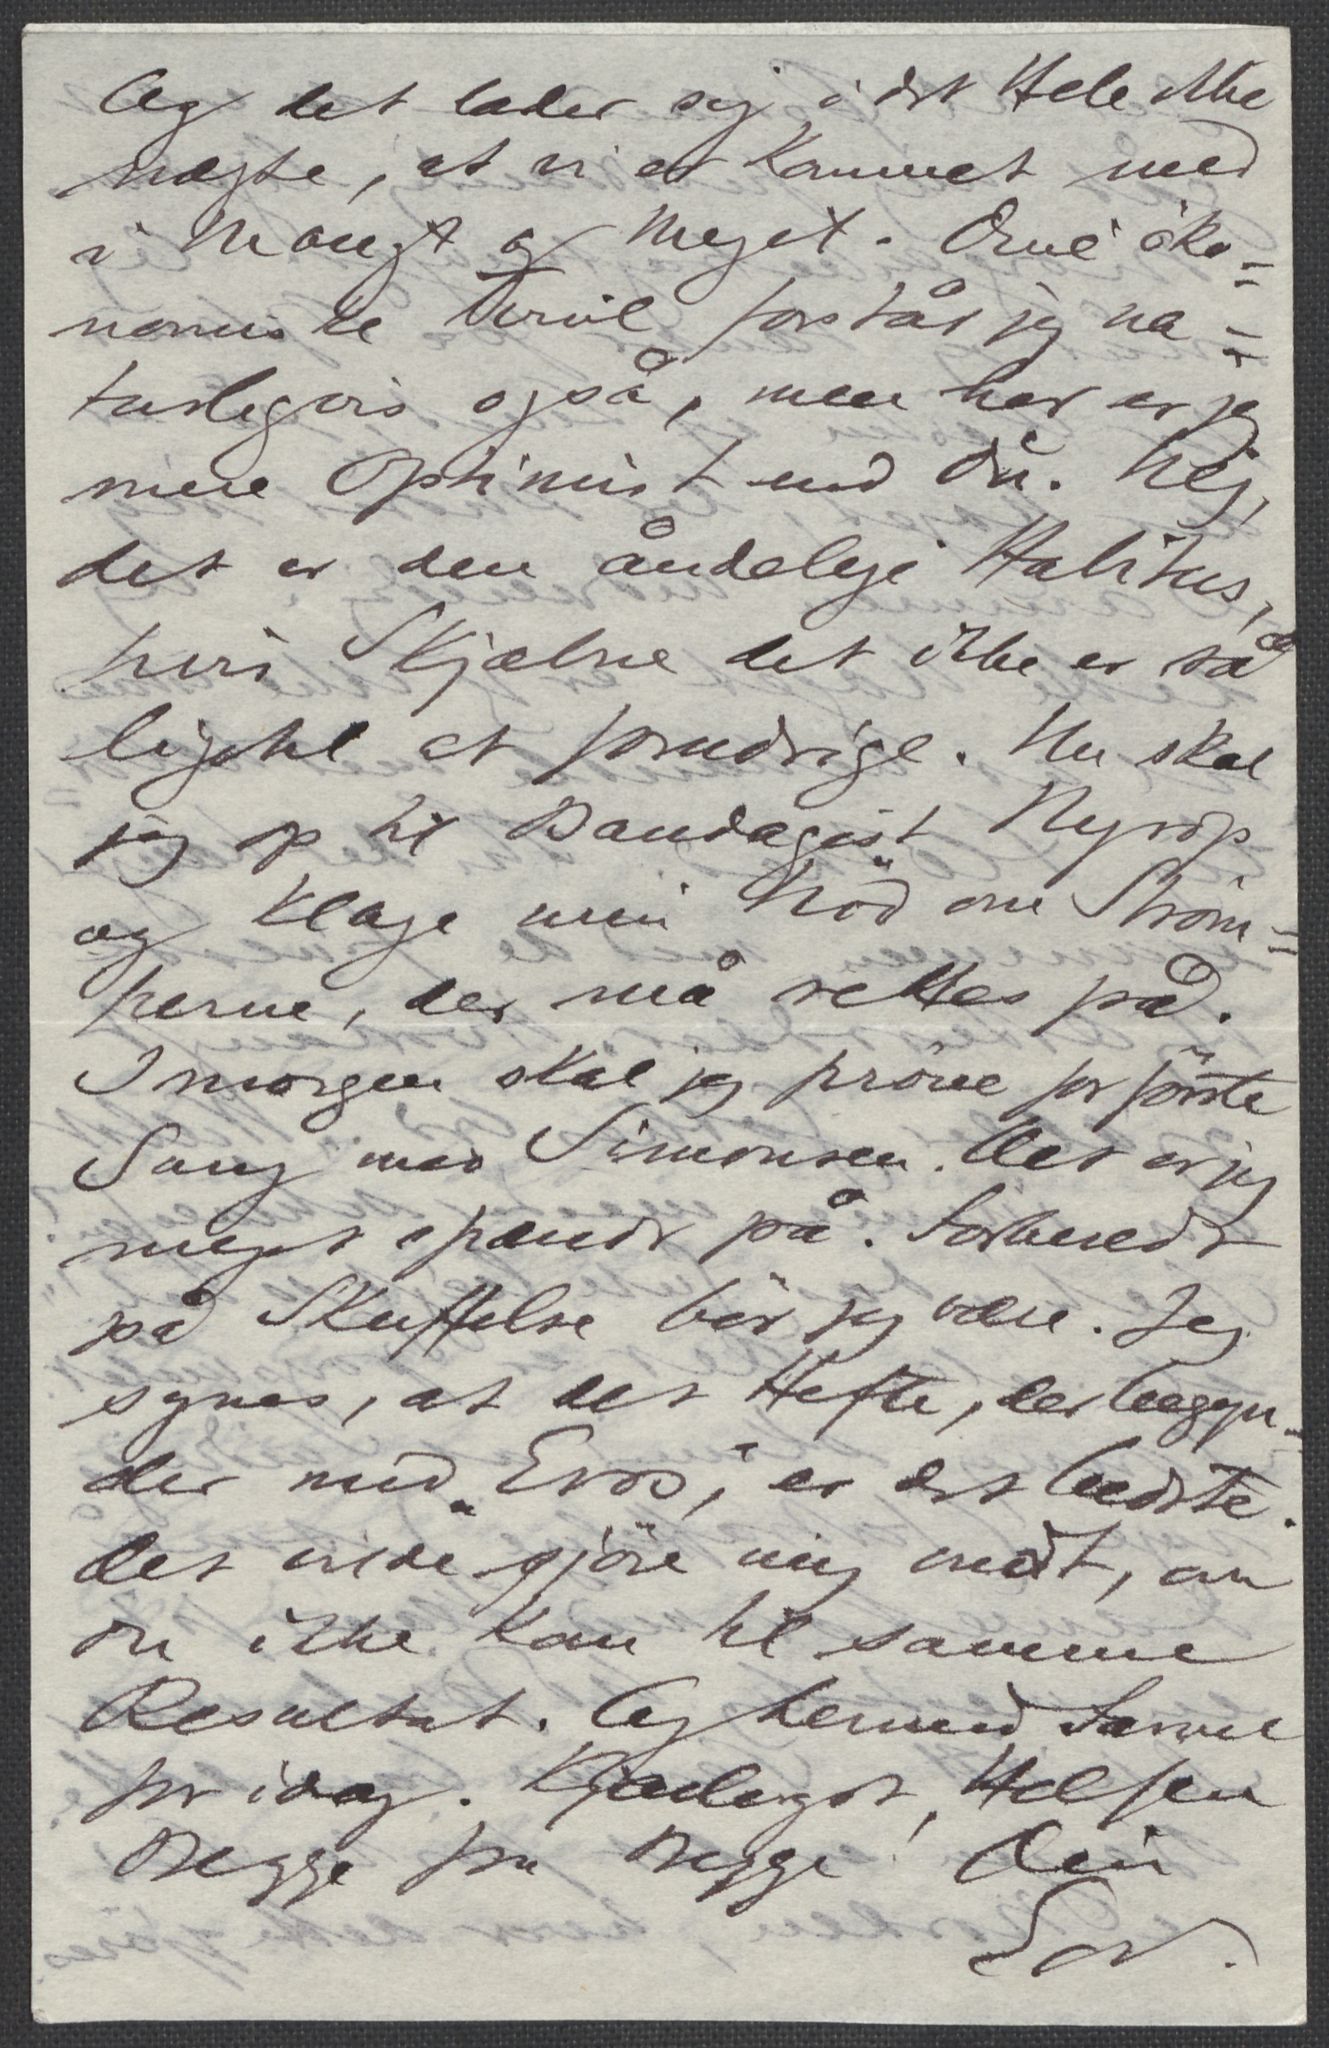 Og det lader sig i det Hele ikke
nægte, at vi er kommet med
i Mangt og Meget. Dine øko=
nomiske Tvivl forstår jeg na=
turligvis også, men her er jeg
mere Optimist end du. Nej,
det er den åndelige Habitus,
hvis Skjælne det ikke er så
ligetil at forandrige. Nu skal
jeg op til Bandagist Nyrop
og klage min Nød om Strøm=
perne, der må rettes på.
Imorgen skal jeg prøve for første
Gang med Simonsen. Det er jeg
meget spændt på. Forberedt
på Skuffelse bør jeg være. Jeg
synes, at det Hefte, der begyn=
der med „Eros“, er det bedste.
Det vilde gjøre mig ondt, om
du ikke kom til samme
Resultat. Og hermed Farvel
for idag. Kjærligst, Hilsen
Begge fra Begge! Din
Edv.